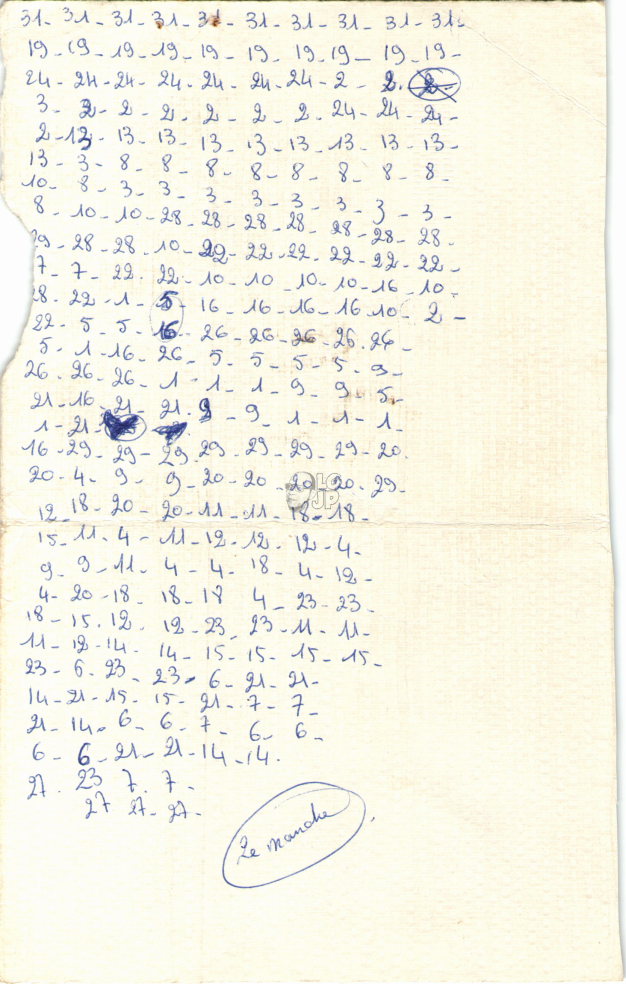 31 - 31 - 31 - 31 - 31 - 31 - 31 - 31 - 31 - 31 -
19 - 19 - 19 - 19 - 19 - 19 - 19 - 19 - 19 - 19 -
24 - 24 - 24 - 24 - 24 - 24 - 24 - 2 - 2 - 2 -
3 - 2 - 2 - 2 - 2 - 2 - 2 - 24 - 24 - 24 -
2 - 13 - 13 - 13 - 13 - 13 - 13 - 13 - 13 - 13 -
13 - 3 - 8 - 8 - 8 - 8 - 8 - 8 - 8 - 8 -
10 - 8 - 3 - 3 - 3 - 3 - 3 - 3 - 3 - 3 -
8 - 10 - 10 - 28 - 28 - 28 - 28 - 28 - 28 - 28 -
29 - 28 - 28 - 10 - 22 - 22 - 22 - 22 - 22 - 22 -
7 - 7 - 22 - 22 - 10 - 10 - 10 - 10 - 16 - 10 -
28 - 22 - 1 - 5 - 16 - 16 - 16 - 16 - 10 - 2 -
22 - 5 - 5 - 16 - 26 - 26 - 26 - 26 - 26 -
5 - 1 - 16 - 26 - 5 - 5 - 5 - 5 - 9 -
26 - 26 - 26 - 1 - 1 - 1 - 9 - 9 - 5 -
21 - 16 - 21 - 21 - 9 - 9 - 1 - 1 - 1 -
1 - 21 -
16 - 29 - 29 - 29 - 29 - 29 - 29 - 29 - 20 -
20 - 4 - 9 - 9 - 20 - 20 - 20 - 20 - 29 -
12 - 18 - 20 - 20 - 11 - 11 - 18 - 18 -
15 - 11 - 4 - 11 - 12 - 12 - 12 - 4 -
9 - 9 - 11 - 4 - 4 - 18 - 4 - 12 -
4 - 20 - 18 - 18 - 18 4 - 23 - 23 -
18 - 15 - 12 - 12 - 23 - 23 - 11 - 11 -
11 - 12 - 14 - 14 - 15 - 15 - 15 - 15 -
23 - 6 - 23 - 23 - 6 - 21 - 21 -
14 - 21 - 15 - 15 - 21 - 7 - 7 -
21 - 14 - 6 - 6 - 7 - 6 - 6 -
6 - 6 - 21 - 21 - 14 - 14 -
27 - 23 7 - 7 -
27 27 - 27 -
2e manche
LO
JP